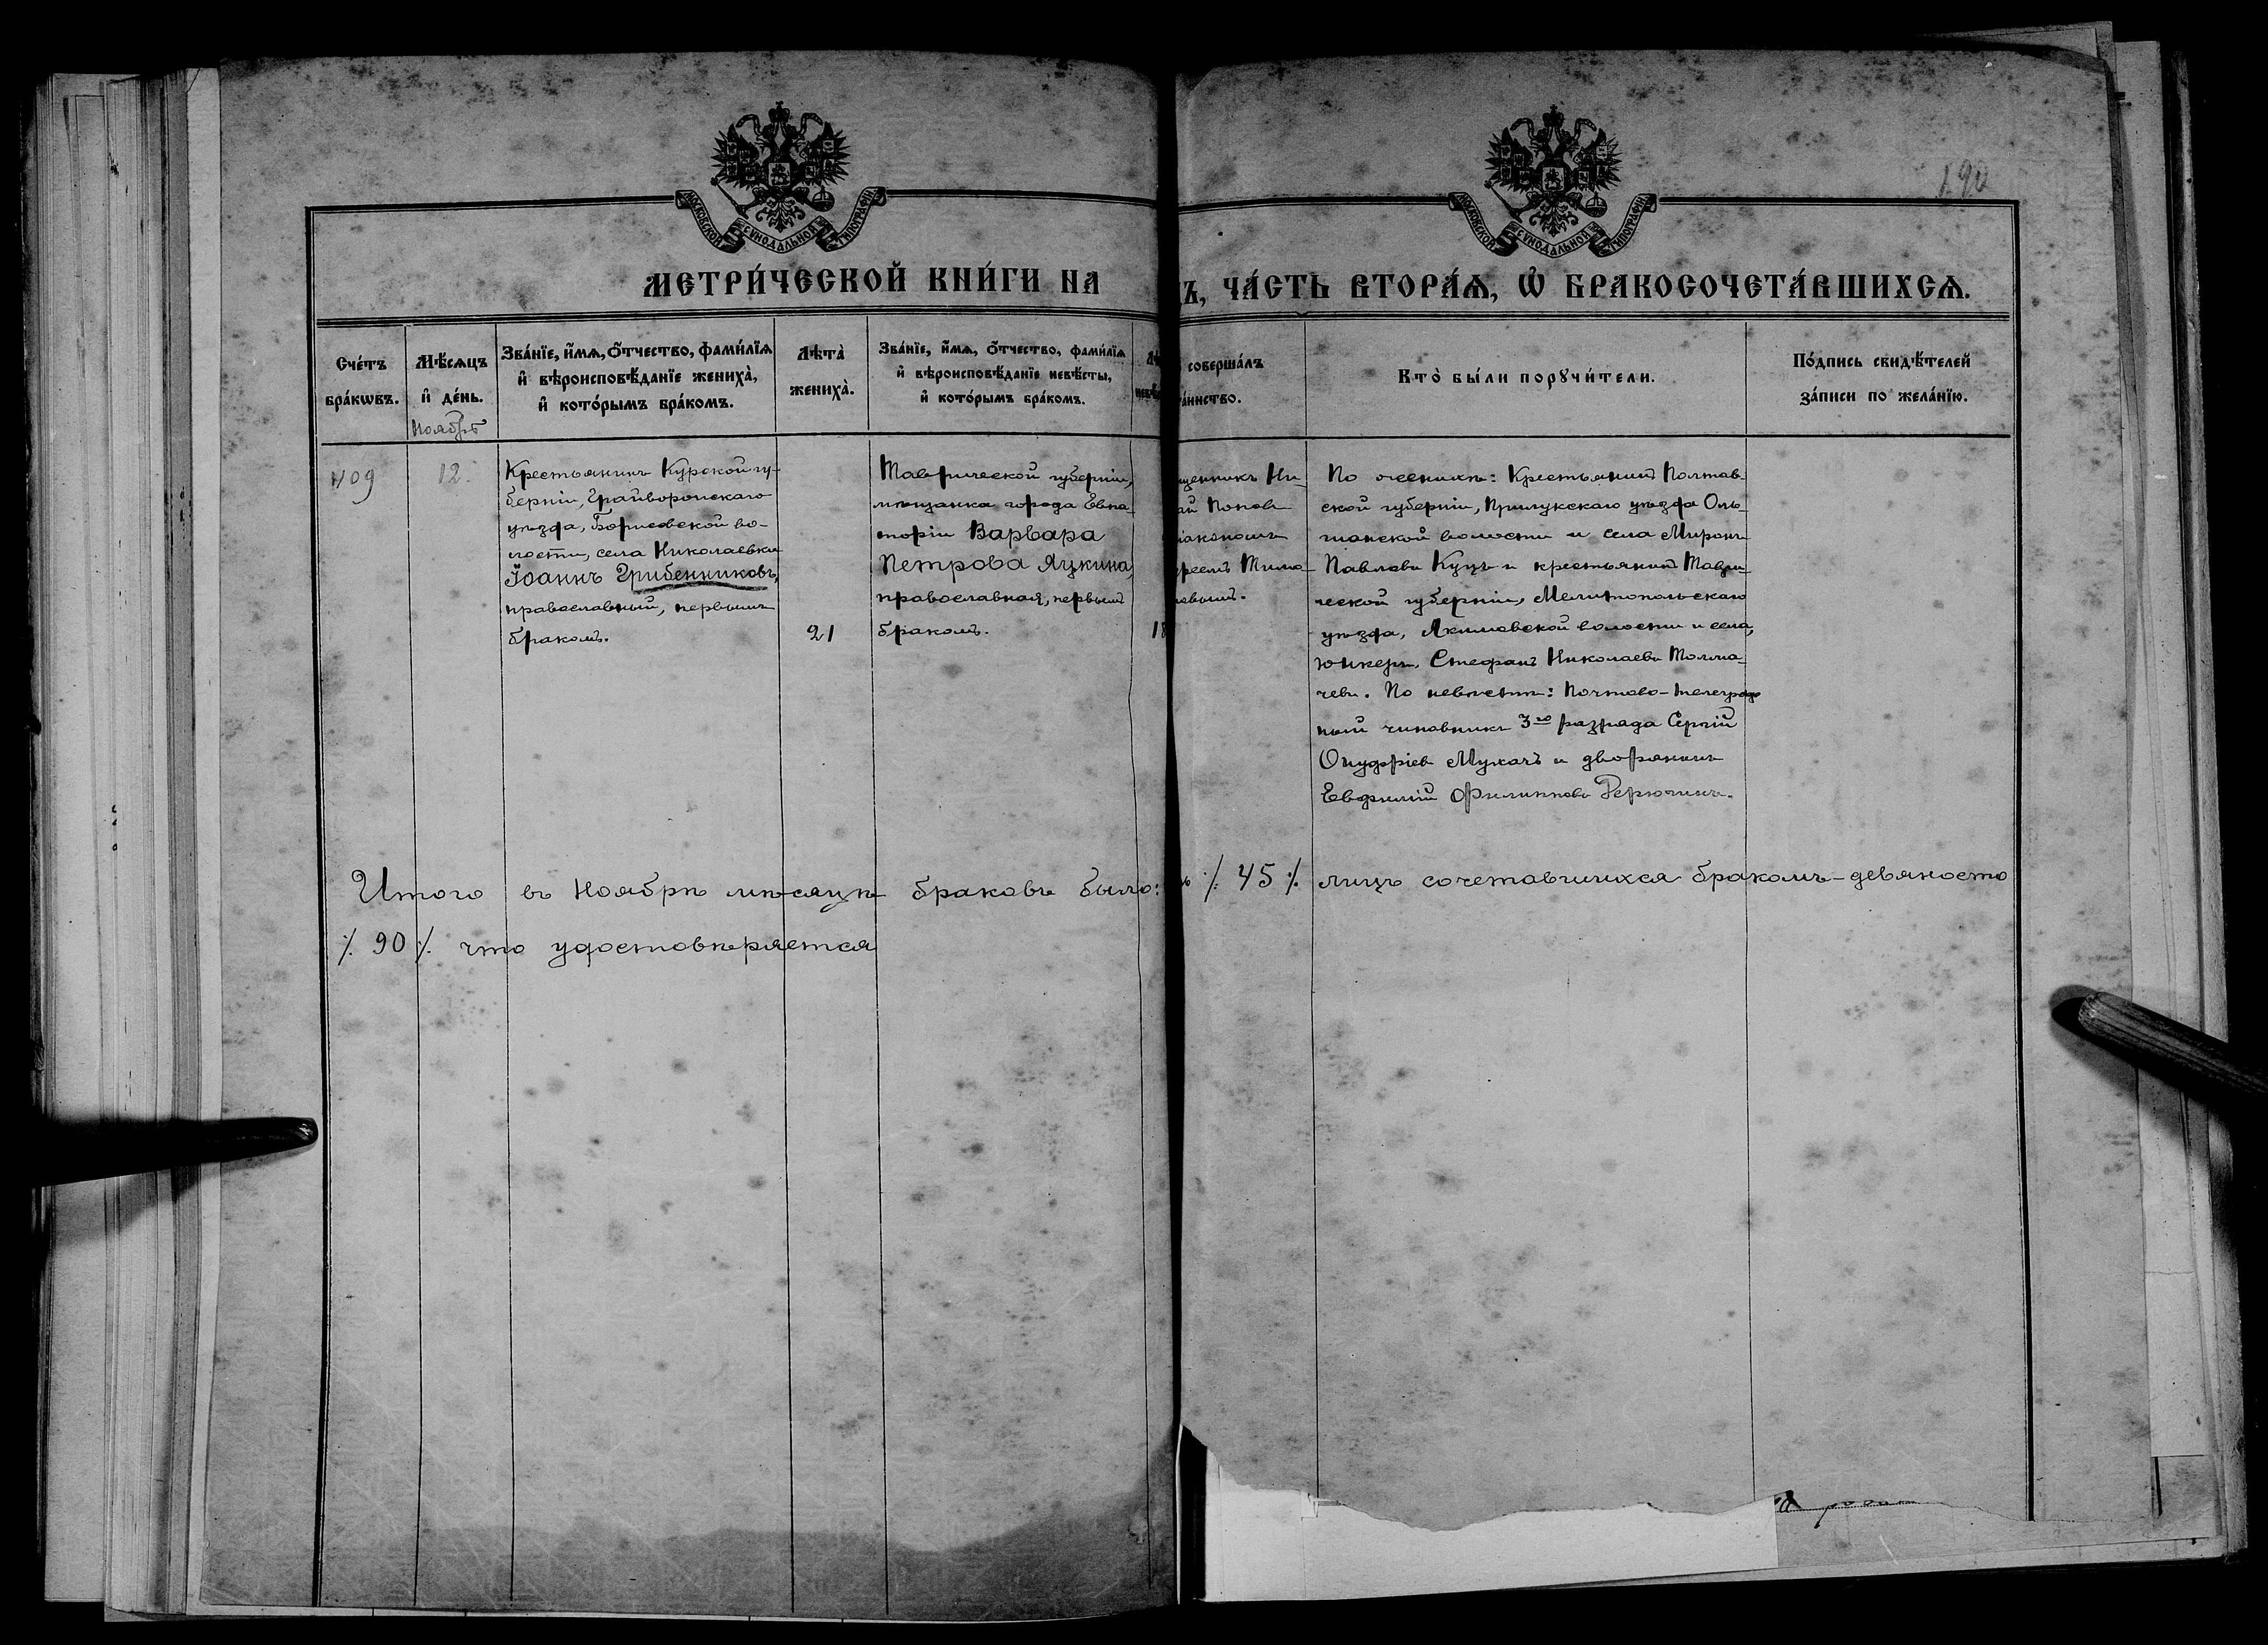 190
МОСКОВСКОЙ СѴНОДАЛЬНОЙ ТИПОГРАФІИ
МОСКОВСКОЙ СѴНОДАЛЬНОЙ ТИПОГРАФІИ
МЕТРИ́ЧЕСКОЙ КНИ́ГИ НА
Ъ, ЧА́СТЬ ВТОРА́Ѧ, Ѽ БРАКОСОЧЕТА́ВШИХСѦ.
Сче́тъ
бра́кѡвъ.
Мѣ́сѧцъ
и҆ де́нь.
Ноябрь
Зва́нїе, и҆́мѧ, ѻ҆́тчество, фами́лїѧ
и҆ вѣроисповѣ́данїе жениха̀,
и҆ кото́рымъ бра́комъ.
Лѣта̀
жениха̀.
Зва́нїе, и҆́мѧ, ѻ҆́тчество, фами́лїѧ
и҆ вѣроисповѣ́данїе невѣ́сты,
и҆ кото́рымъ бра́комъ.
соверша́лъ
та́инство.
Кто̀ бы́ли порꙋчи́тели.
По́дпись свидѣ́телей
за́писи по жела́нїю.
409
12.
Крестьянинъ Курской гу-
берніи, Грайворонскаго
уѣзда, Борисовской во-
лости, села Николаевки
Іоаннъ Грибенниковъ,
православный, первымъ
бракомъ.
21
Таврической губерніи,
мѣщанка города Евпа-
торіи Варвара
Петрова Яцкина,
православная, первымъ
бракомъ.
18
щенникъ Ни-
ай Поповъ
діакономъ
реемъ Тимо-
евымъ.
По женихѣ: Крестьянинъ Полтав-
ской губерніи, Прилукскаго уѣзда Оль-
шанской волости и села Миронъ
Павловъ Куцъ и крестьянинъ Таври-
ческой губерніи, Мелитопольскаго
уѣзда, Акимовской волости и села,
юнкеръ, Стефанъ Николаевъ Толма-
чевъ. По невѣстѣ: Почтово-телеграф-
ный чиновникъ 3го разряда Сергій
Онуфріевъ Мухачъ и дворянинъ
Евфимій Филипповъ
Итого въ Ноябрѣ мѣсяцѣ браковъ было:
ь ⁒ 45 ⁒ лицъ сочетавшихся бракомъ - девяносто
⁒ 90 ⁒ что удостовѣряется